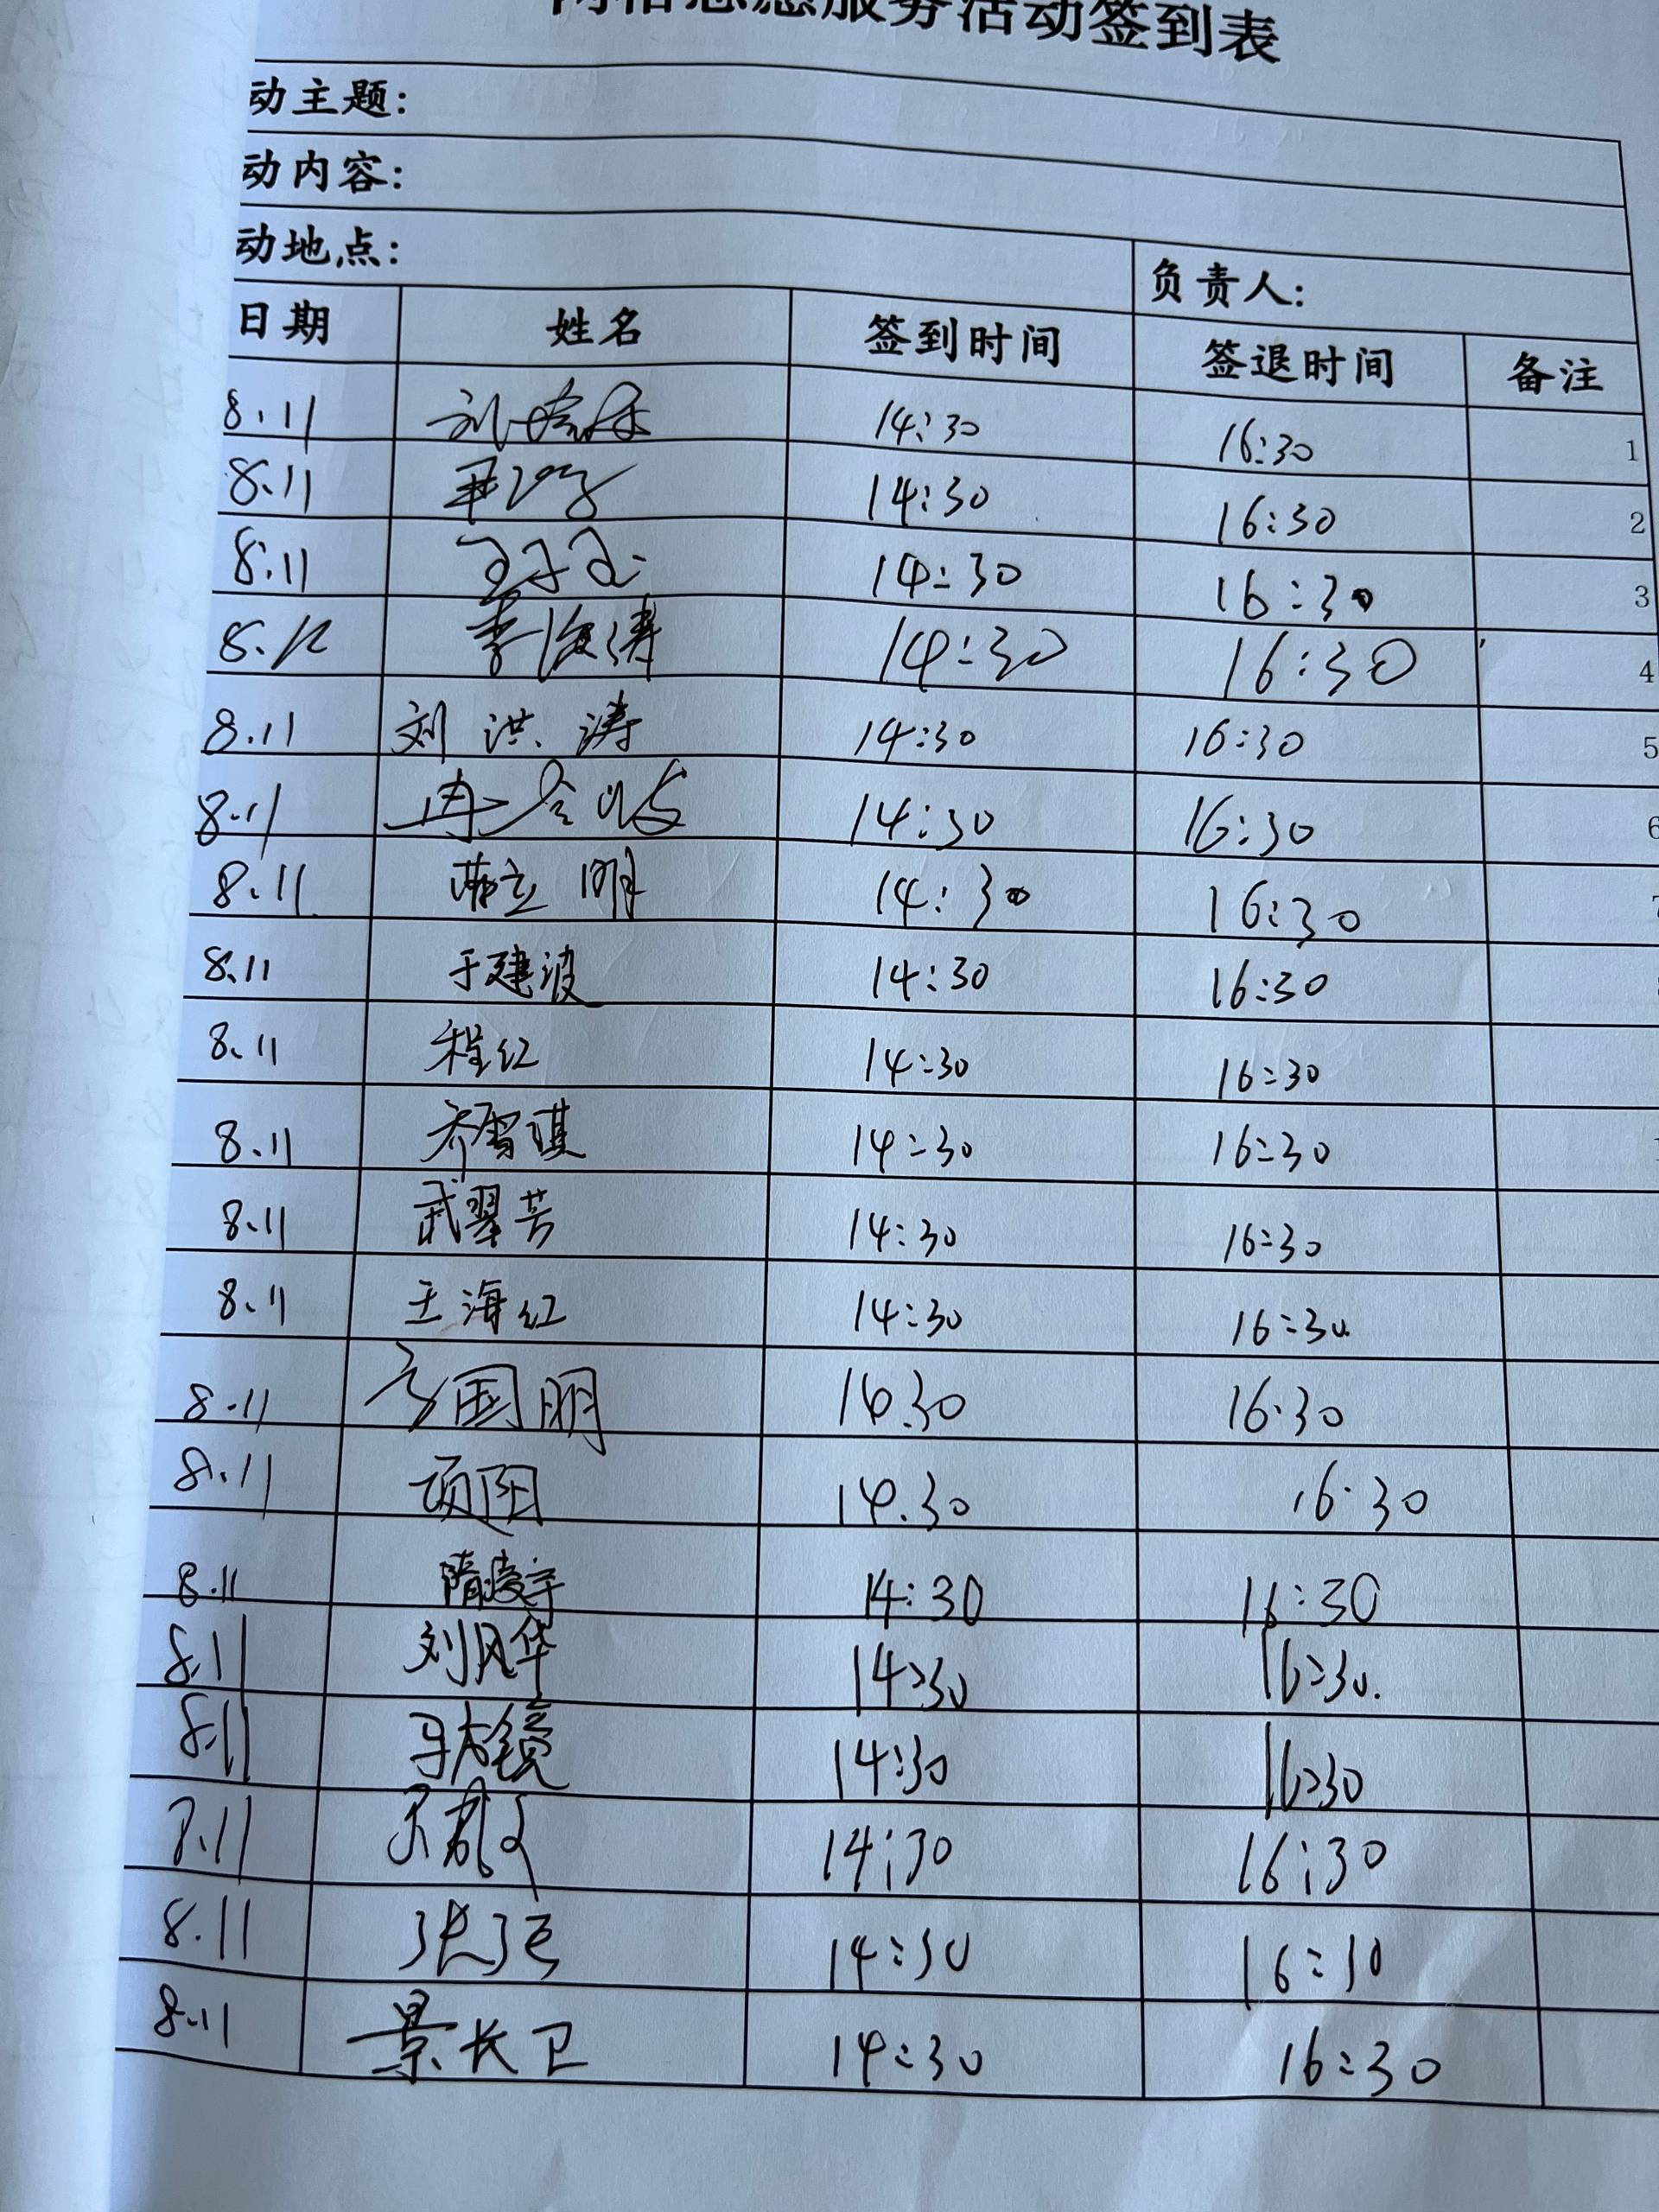 服务活动签到表
动主题:
动内容:
动地点:
负责人:
日期 姓名 签到时间 签退时间 备注
8.11 14:30 16:30 1
8.11 14:30 16:30 2
8.11 14:30 16:30 3
李海涛 14:30 16:30 4
8.11 刘洪涛 14:30 16:30 5
8.11 冉 14:30 16:30 6
8.11 立明 14:30 16:30
8.11 于建波 14:30 16:30
8.11 程红 14:30 16:30
8.11 乔雪琪 14:30 16:30
8.11 武翠芳 14:30 16:30
8.11 王海红 14:30 16:30
8.11 国明 14.30 16.30
8.11 项阳 14.30 16.30
8.11 隋凌宇 14:30 16:30
8.11 刘风华 14:30 16:30.
8.11 14:30 16:30
8.11 14:30 16:30
8.11 张 14:30 16:30
8.11 景长卫 14:30 16:30